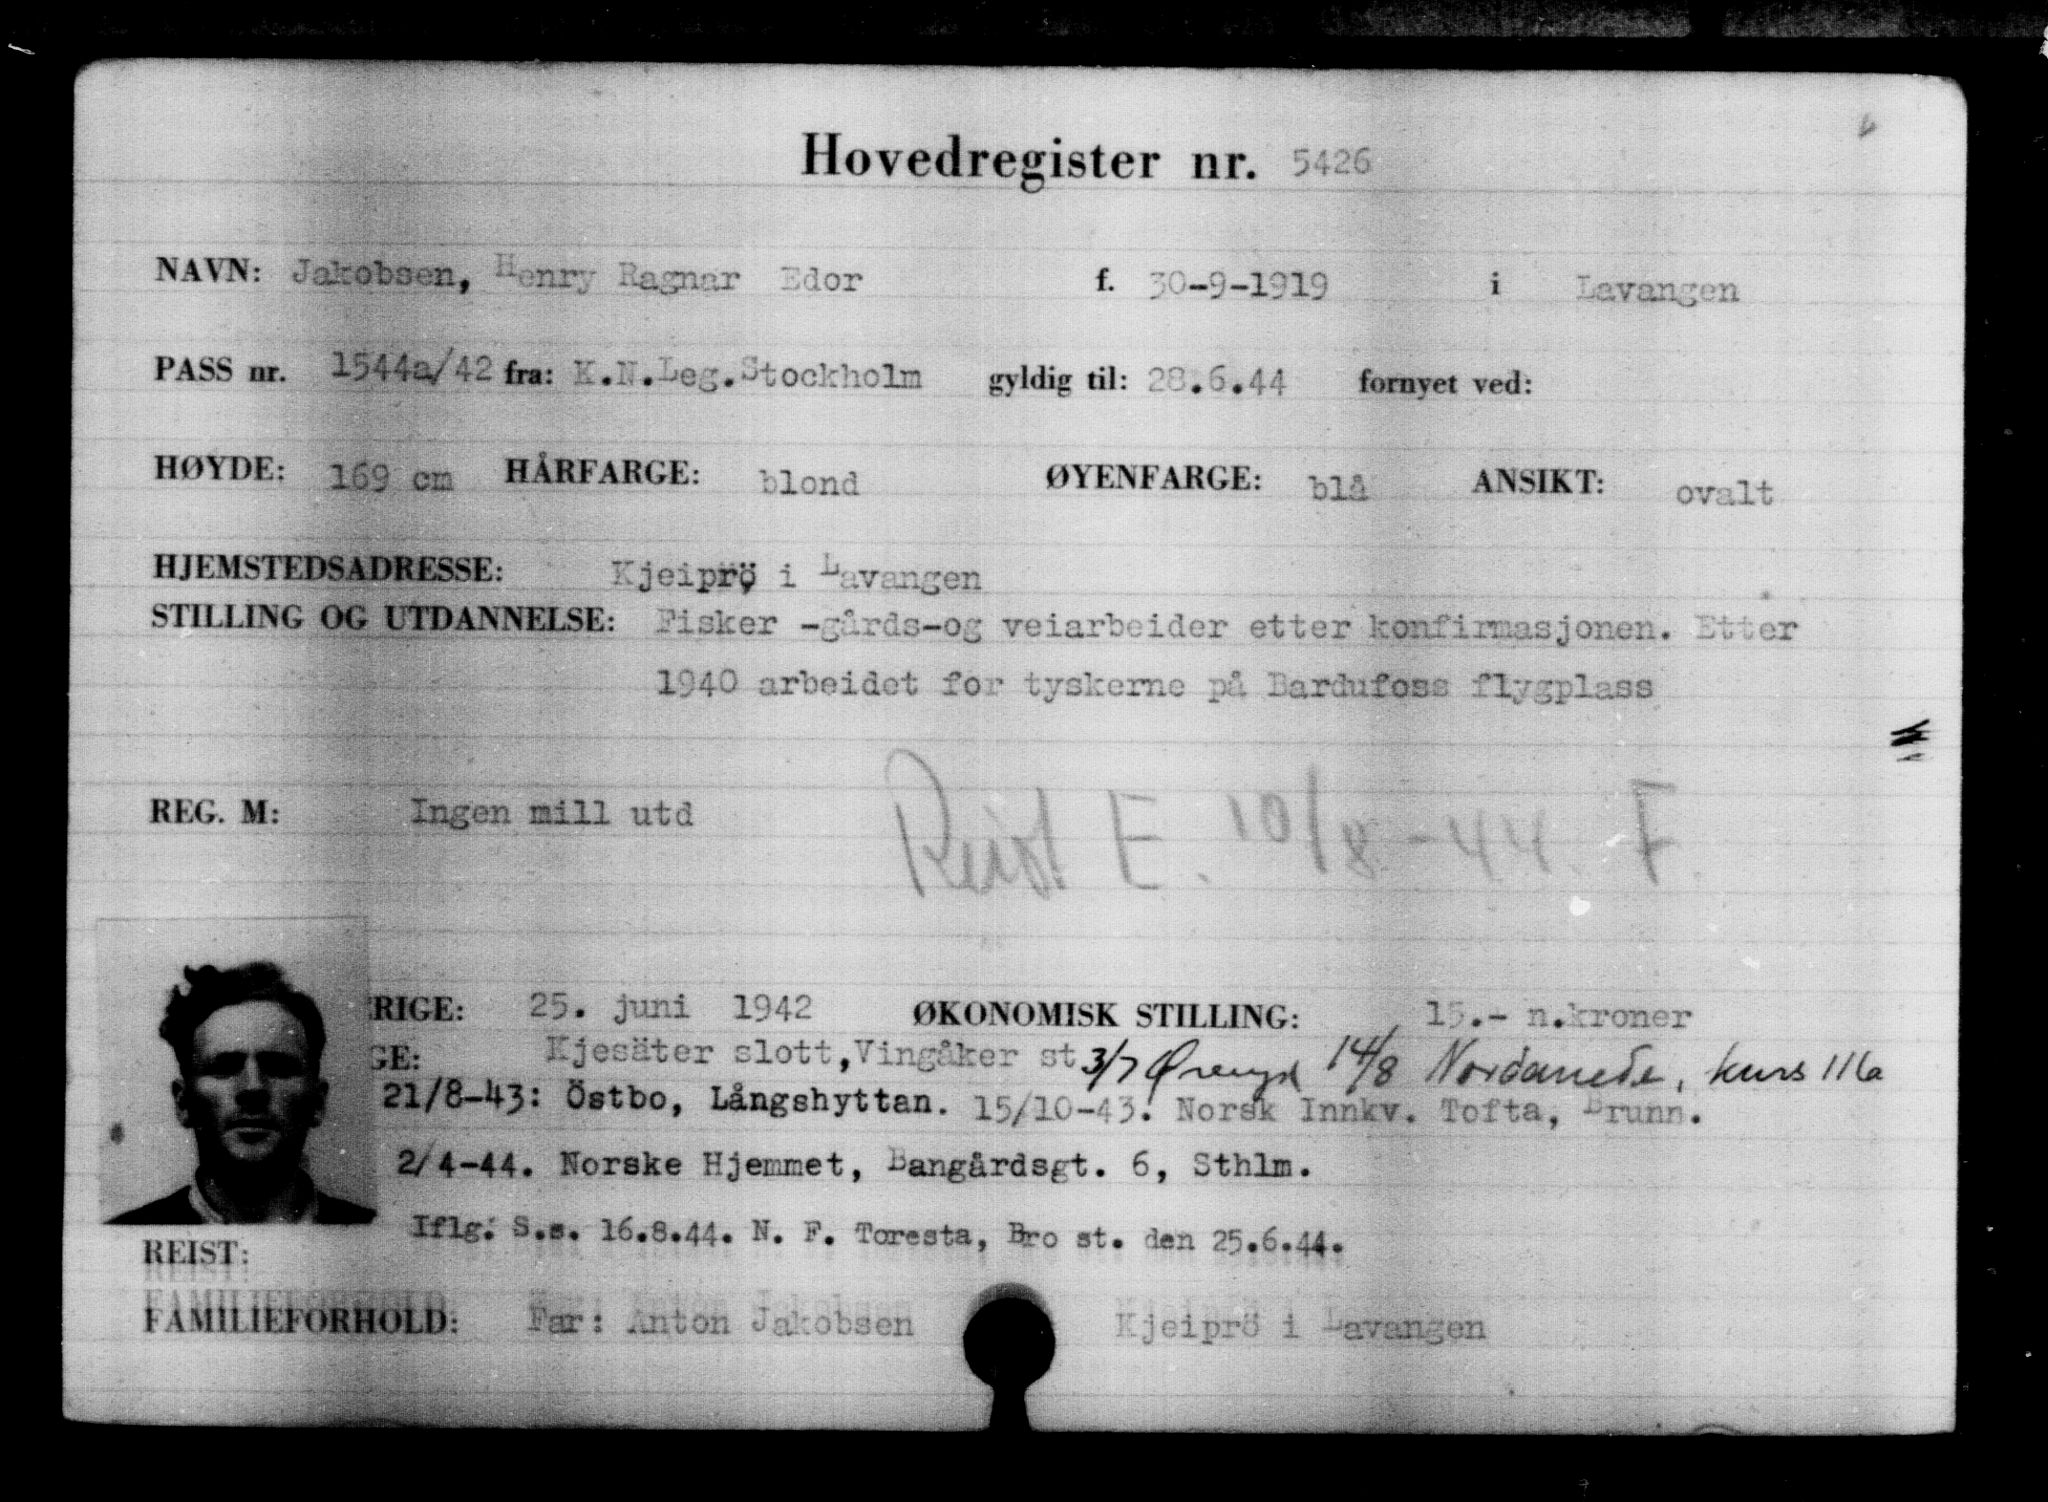 Hovedregister nr. 5426
NAVN: Jakobsen, Henry Ragnar Edor f. 30-9-1919 i Lavangen
PASS nr. 1544a/42 fra: K.N.Leg.Stockholm gyldig til: 28.6.44 fornyet ved:
HØYDE: 169 cm HÅRFARGE: blond ØYENFARGE: blå ANSIKT: ovalt
HJEMSTEDSADRESSE: Kjeiprö i Lavangen
STILLING OG UTDANNELSE: Fisker -gårds-og veiarbeider etter konfirmasjonen. Etter
1940 arbeidet for tyskerne på Bardufoss flygplass
REG. M: Ingen mill utd
Reist E. 10/8-44. F.
RIGE: 25. juni 1942 ØKONOMISK STILLING: 15.- n.kroner
GE: Kjesäter slott,Vingåker st 3/7 14/8 kurs 116a
21/8-43: Östbo, Långshyttan. 15/10-43. Norsk Innkv. Tofta, Brunn.
2/4-44. Norske Hjemmet, Bangårdsgt. 6, Sthlm.
Iflg. S.s. 16.8.44. N. F. Toresta, Bro st. den 25.6.44.
REIST:
FAMILIEFORHOLD: Far: Anton Jakobsen Kjeiprö i Lavangen